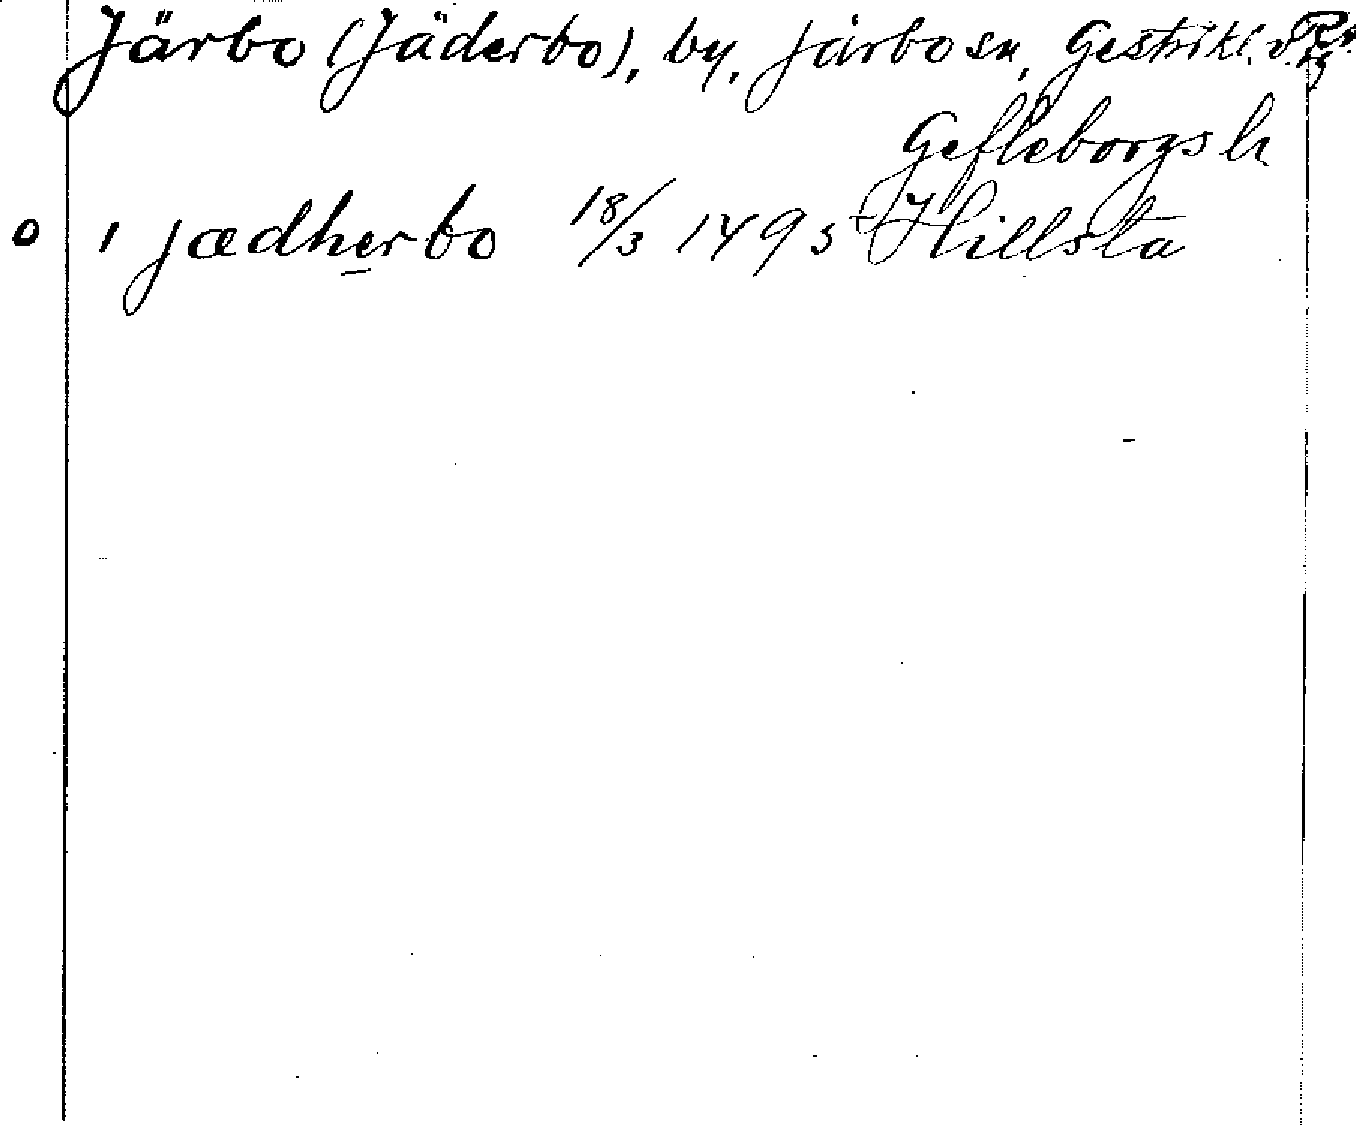 Järbo (Jäderbo), by, Järbo sn, Gestrikl. v.
Gefleborgs l.
o i Jædherbo 18/3 1495 Hillsta